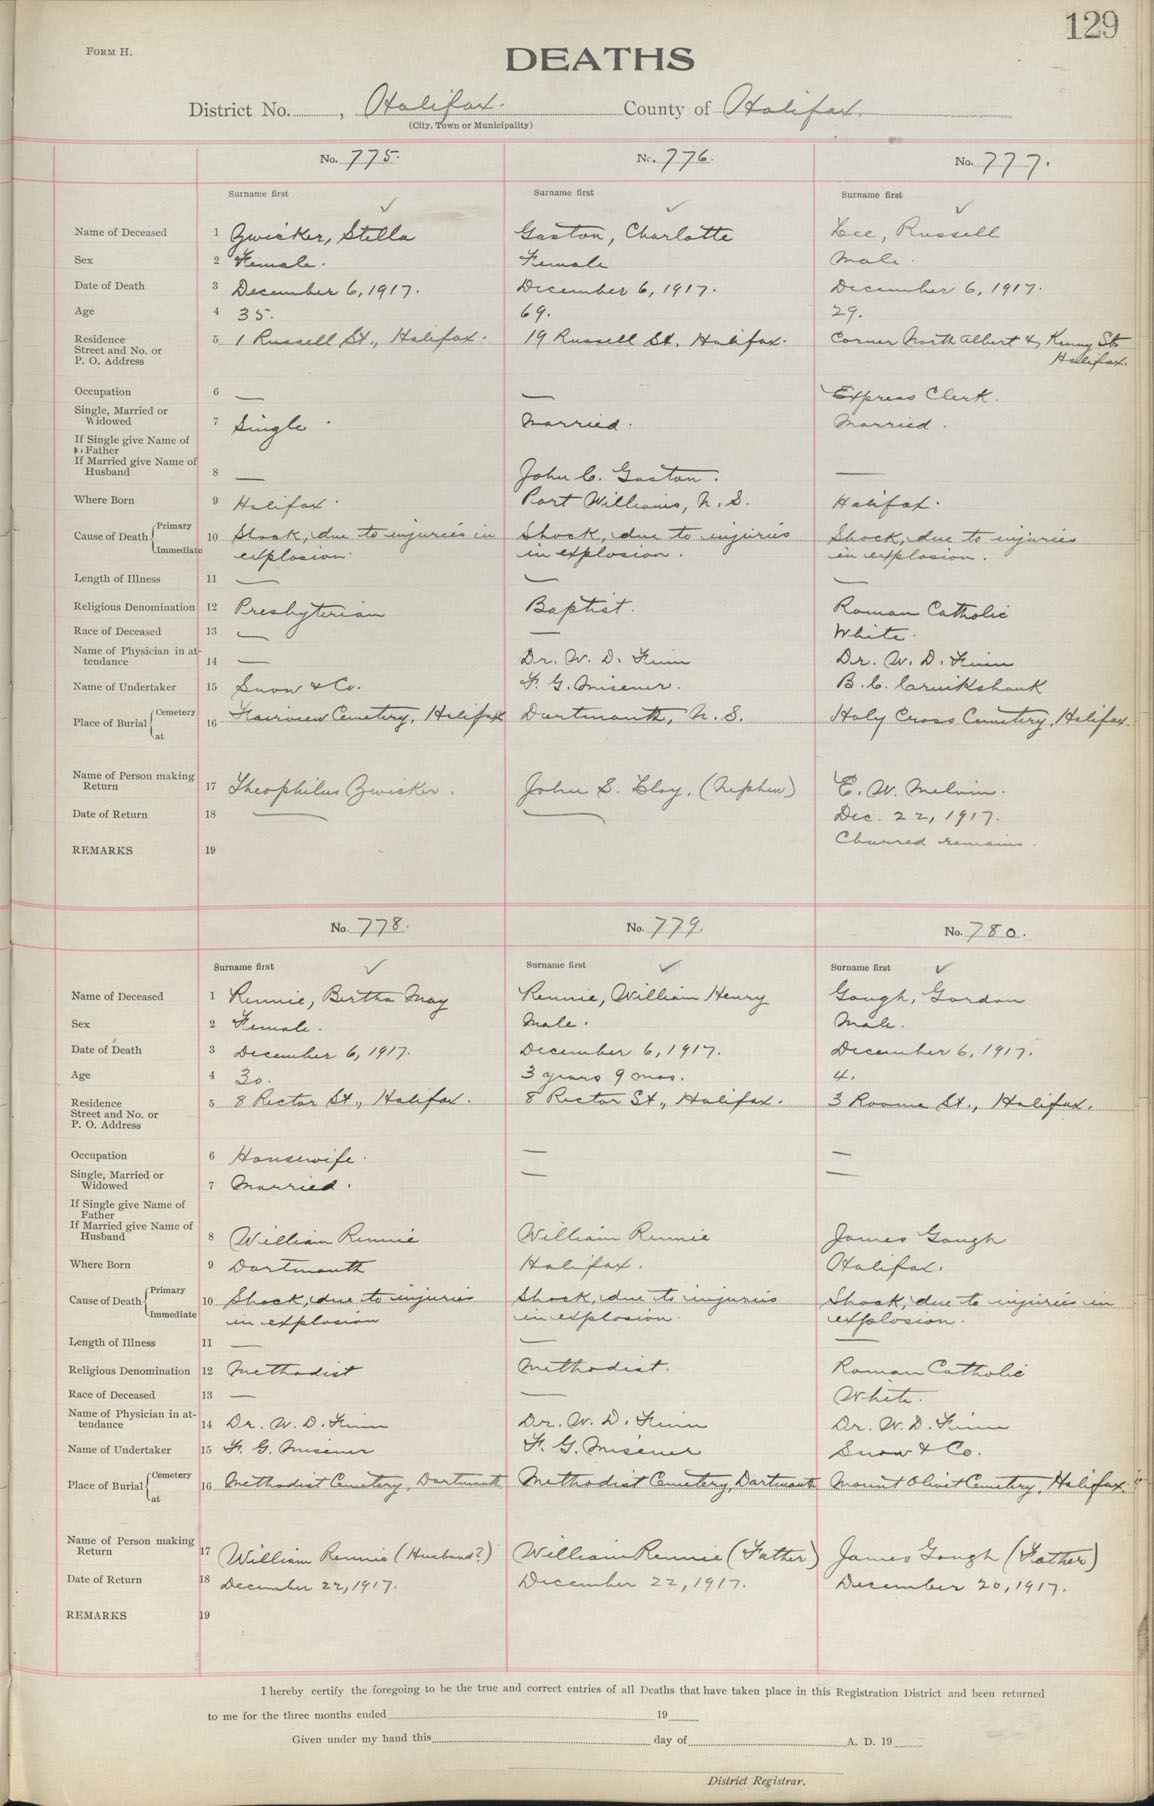 129
FORM H.
DEATHS
District No. , Halifax. County of Halifax.
(City, Town or Municipality)
No. 775. No. 776. No. 777.
Surname first Surname first Surname first
Name of Deceased 1 Zwicker, Stella Gaston, Charlotte Lee, Russell
Sex 2 Female. Female Male.
Date of Death 3 December 6, 1917. December 6, 1917. December 6, 1917.
Age 4 35. 69. 29.
Residence Street and No. or P. O. Address 5 1 Russell St., Halifax. 19 Russell St. Halifax. Corner North Albert & Kenny Sts
Halifax.
Occupation 6 — — Express Clerk.
Single, Married or Widowed 7 Single Married. Married.
If Single give Name of Father
If Married give Name of Husband 8 — John C. Gaston. —
Where Born 9 Halifax. Port Williams, N. S. Halifax.
Cause of Death Primary Immediate 10 Shock, due to injuries in Shock, due to injuries Shock, due to injuries
explosion. in explosion. in explosion.
Length of Illness 11 — — —
Religious Denomination 12 Presbyterian Baptist. Roman Catholic
Race of Deceased 13 — — White.
Name of Physician in attendance 14 — Dr. W. D. Finn Dr. W. D. Finn
Name of Undertaker 15 Snow & Co. F. G. Misener. B. C. Cruikshank
Place of Burial Cemetery at 16 Fairview Cemetery, Halifax Dartmouth, N. S. Holy Cross Cemetery, Halifax.
Name of Person making Return 17 Theophilus Zwicker. John S. Cloy, (Nephew) E. W. Melvin.
Date of Return 18 — — Dec. 22, 1917.
REMARKS 19 Charred remains.
No. 778. No. 779. No. 780.
Surname first Surname first Surname first
Name of Deceased 1 Rennie, Bertha May Rennie, William Henry Gough, Gordon
Sex 2 Female. Male. Male.
Date of Death 3 December 6, 1917. December 6, 1917. December 6, 1917.
Age 4 30. 3 years 9 mos. 4.
Residence Street and No. or P. O. Address 5 8 Rector St., Halifax. 8 Rector St., Halifax. 3 Roome St., Halifax.
Occupation 6 Housewife. — —
Single, Married or Widowed 7 Married. — —
If Single give Name of Father
If Married give Name of Husband 8 William Rennie William Rennie James Gough
Where Born 9 Dartmouth Halifax. Halifax.
Cause of Death Primary Immediate 10 Shock, due to injuries Shock, due to injuries Shock, due to injuries in
in explosion in explosion. explosion.
Length of Illness 11 — — —
Religious Denomination 12 Methodist Methodist. Roman Catholic
Race of Deceased 13 — — White.
Name of Physician in attendance 14 Dr. W. D. Finn Dr. W. D. Finn Dr. W. D. Finn
Name of Undertaker 15 F. G. Misener F. G. Misener Snow & Co.
Place of Burial Cemetery at 16 Methodist Cemetery, Dartmouth Methodist Cemetery, Dartmouth Mount Olivet Cemetery, Halifax.
Name of Person making Return 17 William Rennie (Husband?) William Rennie (Father) James Gough (Father)
Date of Return 18 December 22, 1917. December 22, 1917. December 20, 1917.
REMARKS 19
I hereby certify the foregoing to be the true and correct entries of all Deaths that have taken place in this Registration District and been returned
to me for the three months ended 19
Given under my hand this day of A. D. 19
District Registrar.